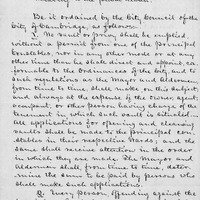 Be it ordained by the City Council of the
City of Cambridge, as follows:
1. No vault or privy shall be emptied
without a permit from one of the principal
constables, nor in any other mode or at any
other time than he shall direct and appoint, con-
formable to the Ordinances of the City, and to
such regulations as the Mayor and Aldermen
from time to time, shall make, on this subject
and always at the expense of the owner, agent,
occupant, or other person having charge of the
tenement in which such vault is situated—
all applications for opening and cleansing
vaults shall be made to the principal con-
stables in their respective Wards; and the
same shall receive attention in the order
in which they are made. The Mayor and
Aldermen shall, from time to time, deter-
mine the sums to be paid by persons who
shall make such applications.
2. Every person offending against the